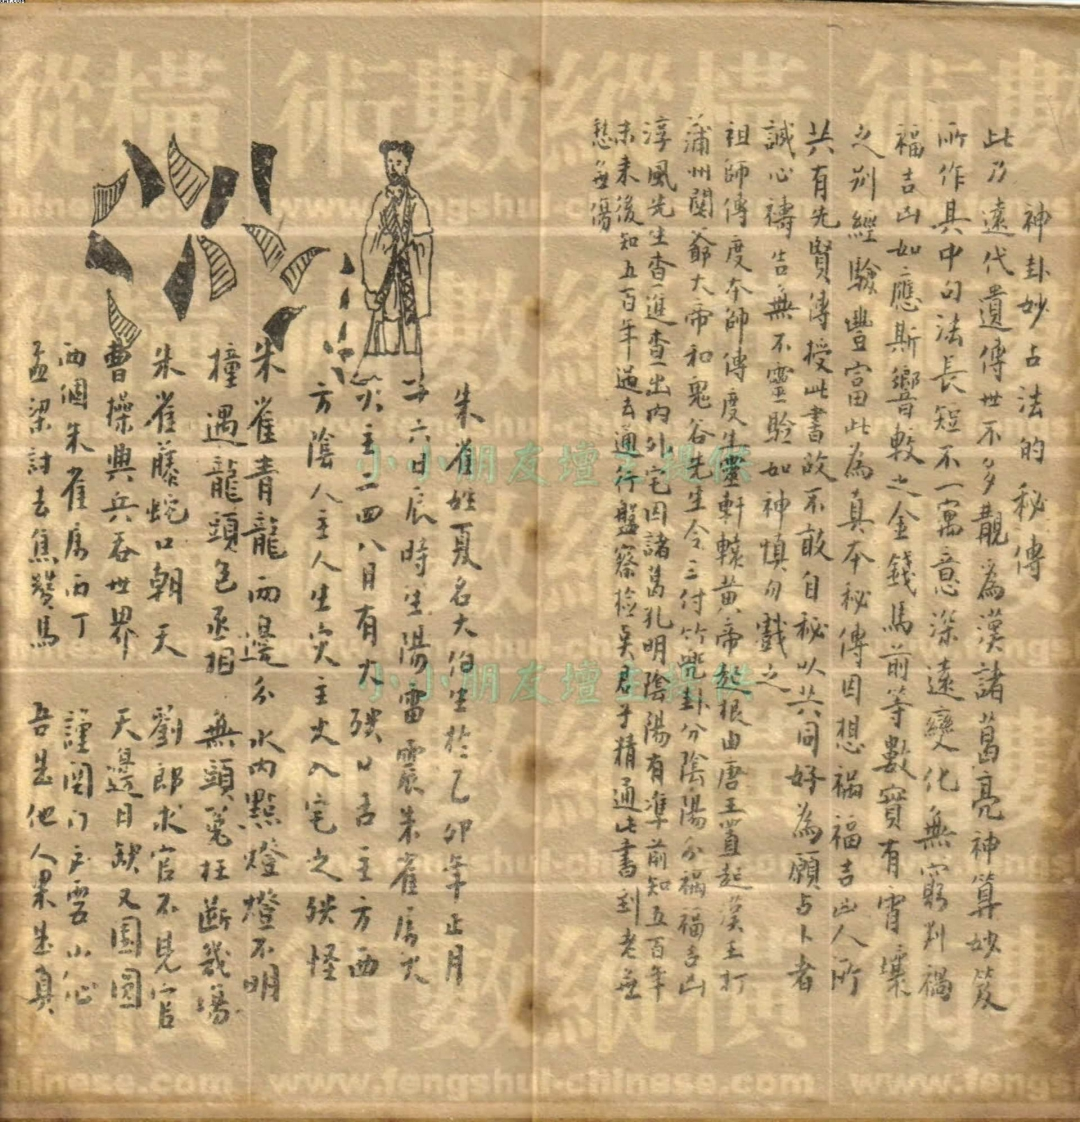 神卦妙占法的秘傳
此乃遠代遺傳世不多觀為漢諸葛亮神算妙笈
所作其中句法長短不一寓意深遠變化無窮判禍
福吉凶如應斯響較之金錢馬前等數實有霄壤
之別經驗豐富此為真本秘傳因想禍福吉凶人所
共有先賢傳授此書故不敢自秘以共同好為願占卜者
誠心禱告無不靈驗如神慎勿戲之
祖師傳度本師傳度生靈軒轅黃帝起根由唐王置起漢王打
蒲州關爺大帝和鬼谷先生令三付竹兜卦分陰陽分禍福吉凶
淳風先生查進查出內外宅因諸葛孔明陰陽有準前知五百年
未來後知五百年過去通行盤察檢吳君子精通此書到老無
愁無傷
朱雀姓夏名大伯生於乙卯年正月
十六日辰時生陽雷震朱雀屬火
火主二四八月有火殃口舌主方西
方陰人主人生災主火入宅之殃怪
朱雀青龍兩邊分水內點燈燈不明
撞遇龍頭包丞相 無頭冤枉斷幾場
朱雀藤蛇口朝天 劉郎求官不見官
曹操興兵吞世界 天邊月缺又圓圓
兩個朱雀屬丙丁 謹關門戶要小心
孟梁討去焦贊馬 吾是他人果是真
縱橫術數
縱橫術數
www.fengshui-chinese.com
小小朋友壇主提供
小小朋友壇主提供